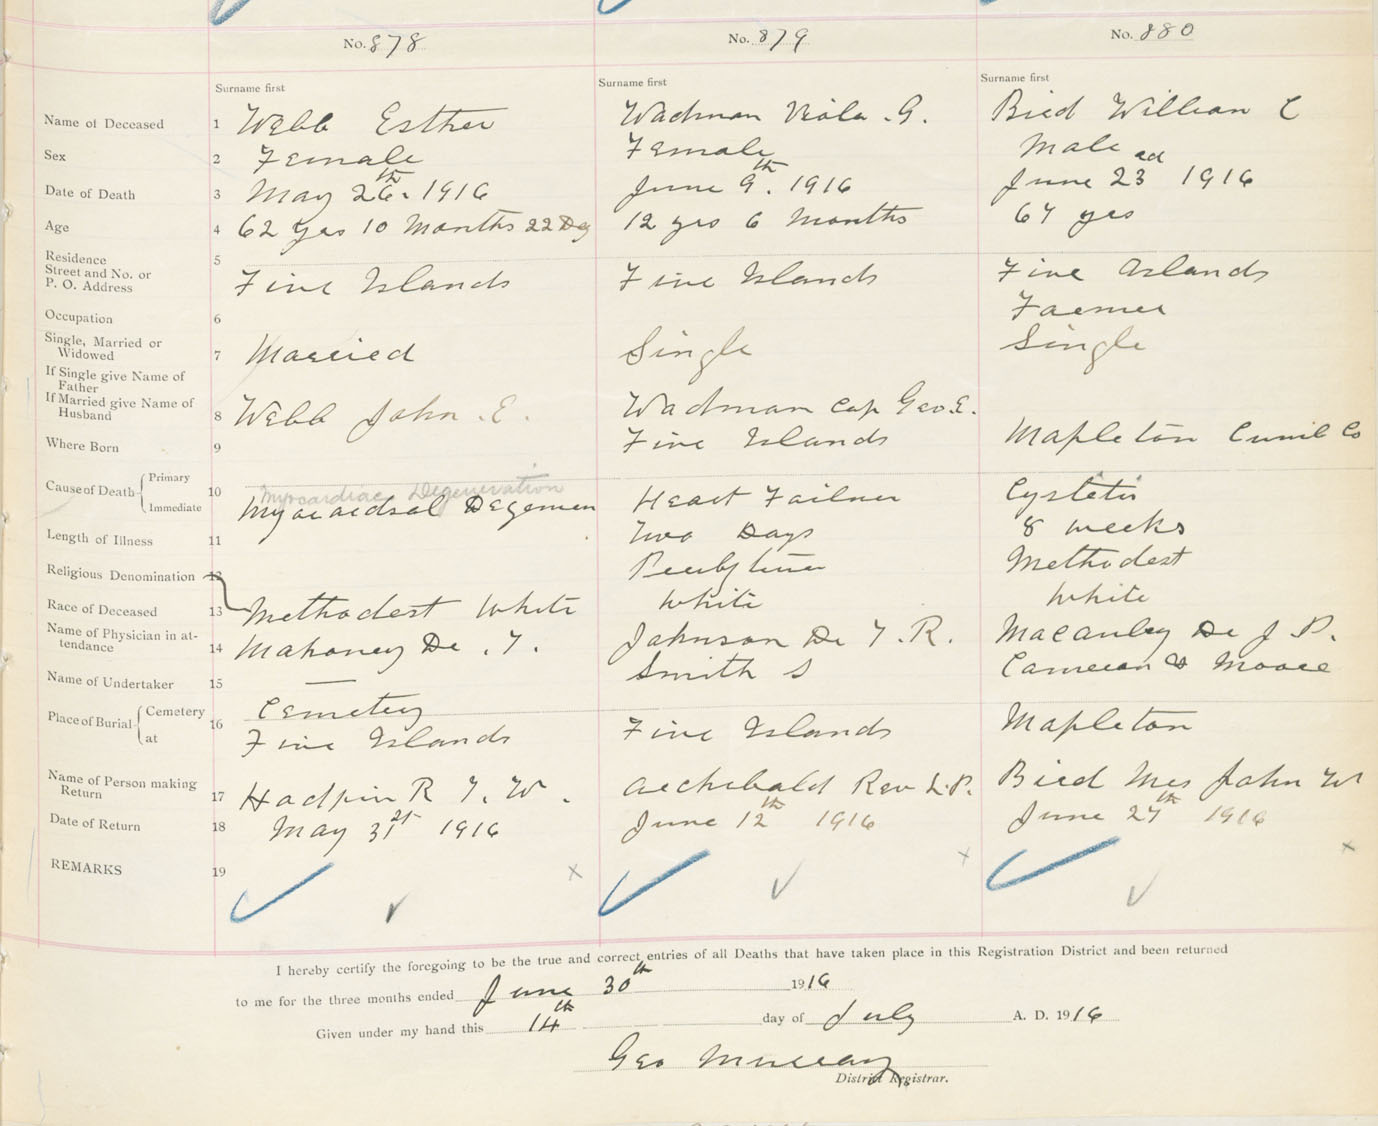 No. 878 No. 879 No. 880
Surname first Surname first Surname first
Name of Deceased 1 Webb Esther Wadman Viola . G. Bird William C
Sex 2 Female Female Male
Date of Death 3 May 26th. 1916 June 9th. 1916 June 23rd 1916
Age 4 62 yrs 10 Months 22 Dy 12 yrs 6 Months 67 yrs
Residence 5
Street and No. or
P. O. Address Five Islands Five Islands Five Islands
Occupation 6 Farmer
Single, Married or
Widowed 7 Married Single Single
If Single give Name of
Father
If Married give Name of
Husband 8 Webb John . E. Wadman Cap Geo. E.
Where Born 9 Five Islands Mapleton Cumb Co
Myocardiac Degeneration
Cause of Death Primary Immediate 10 Degemen Heart Failuer Cystitis
Length of Illness 11 Two Days 8 weeks
Religious Denomination 12 Methodest
Race of Deceased 13 Methodest White White White
Name of Physician in at-
tendance 14 Mahoney Dr . T. Johnson Dr T. R. Macauley Dr J P.
Name of Undertaker 15 — Smith S Cameron & Moore
Place of Burial Cemetery at 16 Cemetery
Five Islands Five Islands Mapleton
Name of Person making
Return 17 R T. W. Archibald Rev L. P. Bird Mrs John W
Date of Return 18 May 31st 1916 June 12th 1916 June 27th 1916
REMARKS 19
I hereby certify the foregoing to be the true and correct entries of all Deaths that have taken place in this Registration District and been returned
to me for the three months ended June 30th 1916
Given under my hand this 14th day of July A. D. 1916
Geo Murray
District Registrar.